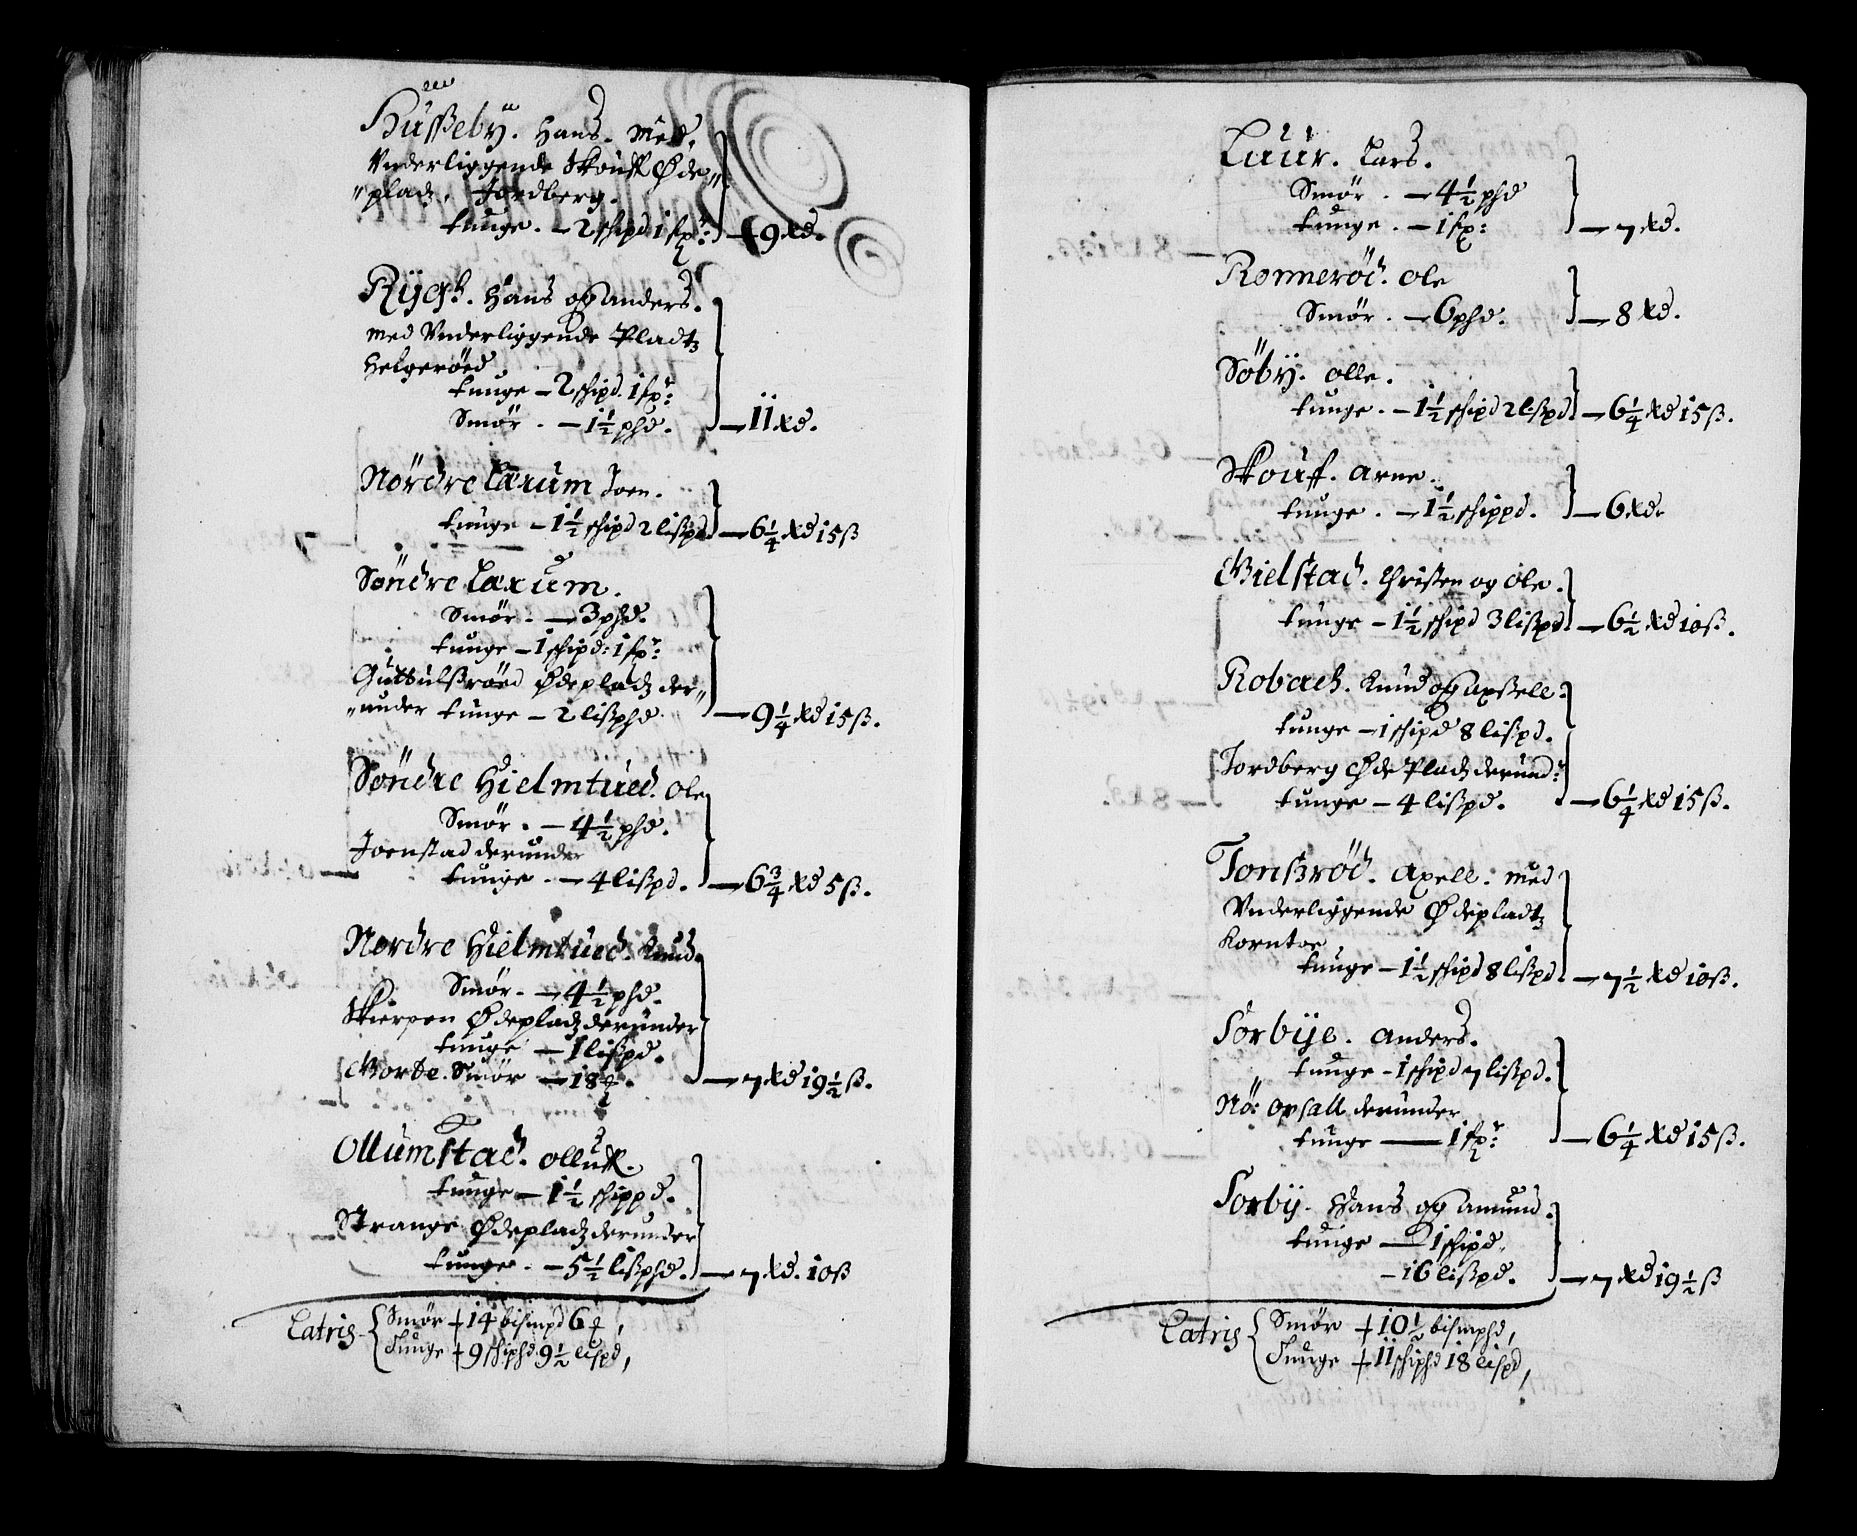 Hüsßebÿ. Hans. Med.
Vnderliggende Skouff Øde-
"plads, Jordberg.
tunge. — 2 schipd 1 sp: — 9 Rd.
Rÿgh. Hans og anders.
med Vnderliggende Pladtz
Helgeröed
tunge — 2 schipd. 1 sp:
Smör. — 1½ phd. — 11 Rd.
Nördre Laxum Joen.
tunge — 1½ schipd 2 lißpd — 6¼ Rd 15 ß
Söndre Laxum.
Smör. — 3 phd.
tunge — 1 schipd: 1 sp:
Guttulßröed Ödepladz der"
"under tunge — 2 lißphd. — 9¼ Rd 15 ß.
Söndre Hielmtued. Ole
Smör. — 4½ phd.
Joenstad derunder
tunge. — 4 lißpd. — 6¾ Rd 5 ß.
Nordre Hielmtued. Knud
Smör. — 4½ phd.
Skierpen Ødepladz derunder
tunge — 1 lißpd.
Smör — 18 — 7 Rd 19½ ß.
Ollumstad. olluff.
tunge — 1½ schippd.
Strange Ødepladz derunder
tunge. — 5½ lißphd. — 7 Rd. 10 ß
Latris { Smör + 14 bismpd 6
Tunge + 9 schiphd 9½ lispd,
Luür. Lars.
Smör. — 4½ phd
tunge. — 1 sp: — 7 Rd.
Ronneröd. Ole
Smör. — 6 phd. — 8 Rd.
Söbÿ. olle.
tunge. — 1½ schipd 2 lißpd. — 6¼ Rd 15 ß.
Skouff. arne.
tunge. — 1½ schippd. — 6 Rd.
Gielstad. Christen og Ole.
tunge — 1½ schipd 3 lißpd. — 6½ Rd 10 ß.
Robach. Knud og axßell.
tunge — 1 schipd 8 lißpd.
Jordberg Øde Pladz derund:
tunge — 4 lißpd. — 6¼ Rd 15 ß.
Tonßröd. Axell. med
Vnderliggende Ødepladtz
Korntoe
tunge — 1½ schipd 8 lißpd. — 7½ Rd 10 ß.
Sorbÿe. anders.
tunge — 1 schipd 7 lißpd.
Nö: Opsall derunder
tunge — 1 sp: — 6¼ Rd 15 ß.
Sorbÿ. Hans og amund.
tunge — 1 schipd.
— 16 lißpd. — 7 Rd 19½ ß
Latris { Smör + 10½ bismphd,
Tunge + 11 schiphd 18 lispd,